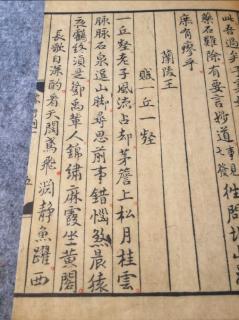 此吾過矣
藥石難除有要言妙道事見七發往問北山
庶有瘳乎
蘭陵王
賦一丘一壑
一丘壑老子風流占却茅簷上松月桂雲
脉脉石泉逗山脚尋思前事錯惱煞晨猿
夜鶴終須是鄧禹輩人錦繡麻霞坐黃閣
長歌自深酌看天闊鳶飛淵靜魚躍西